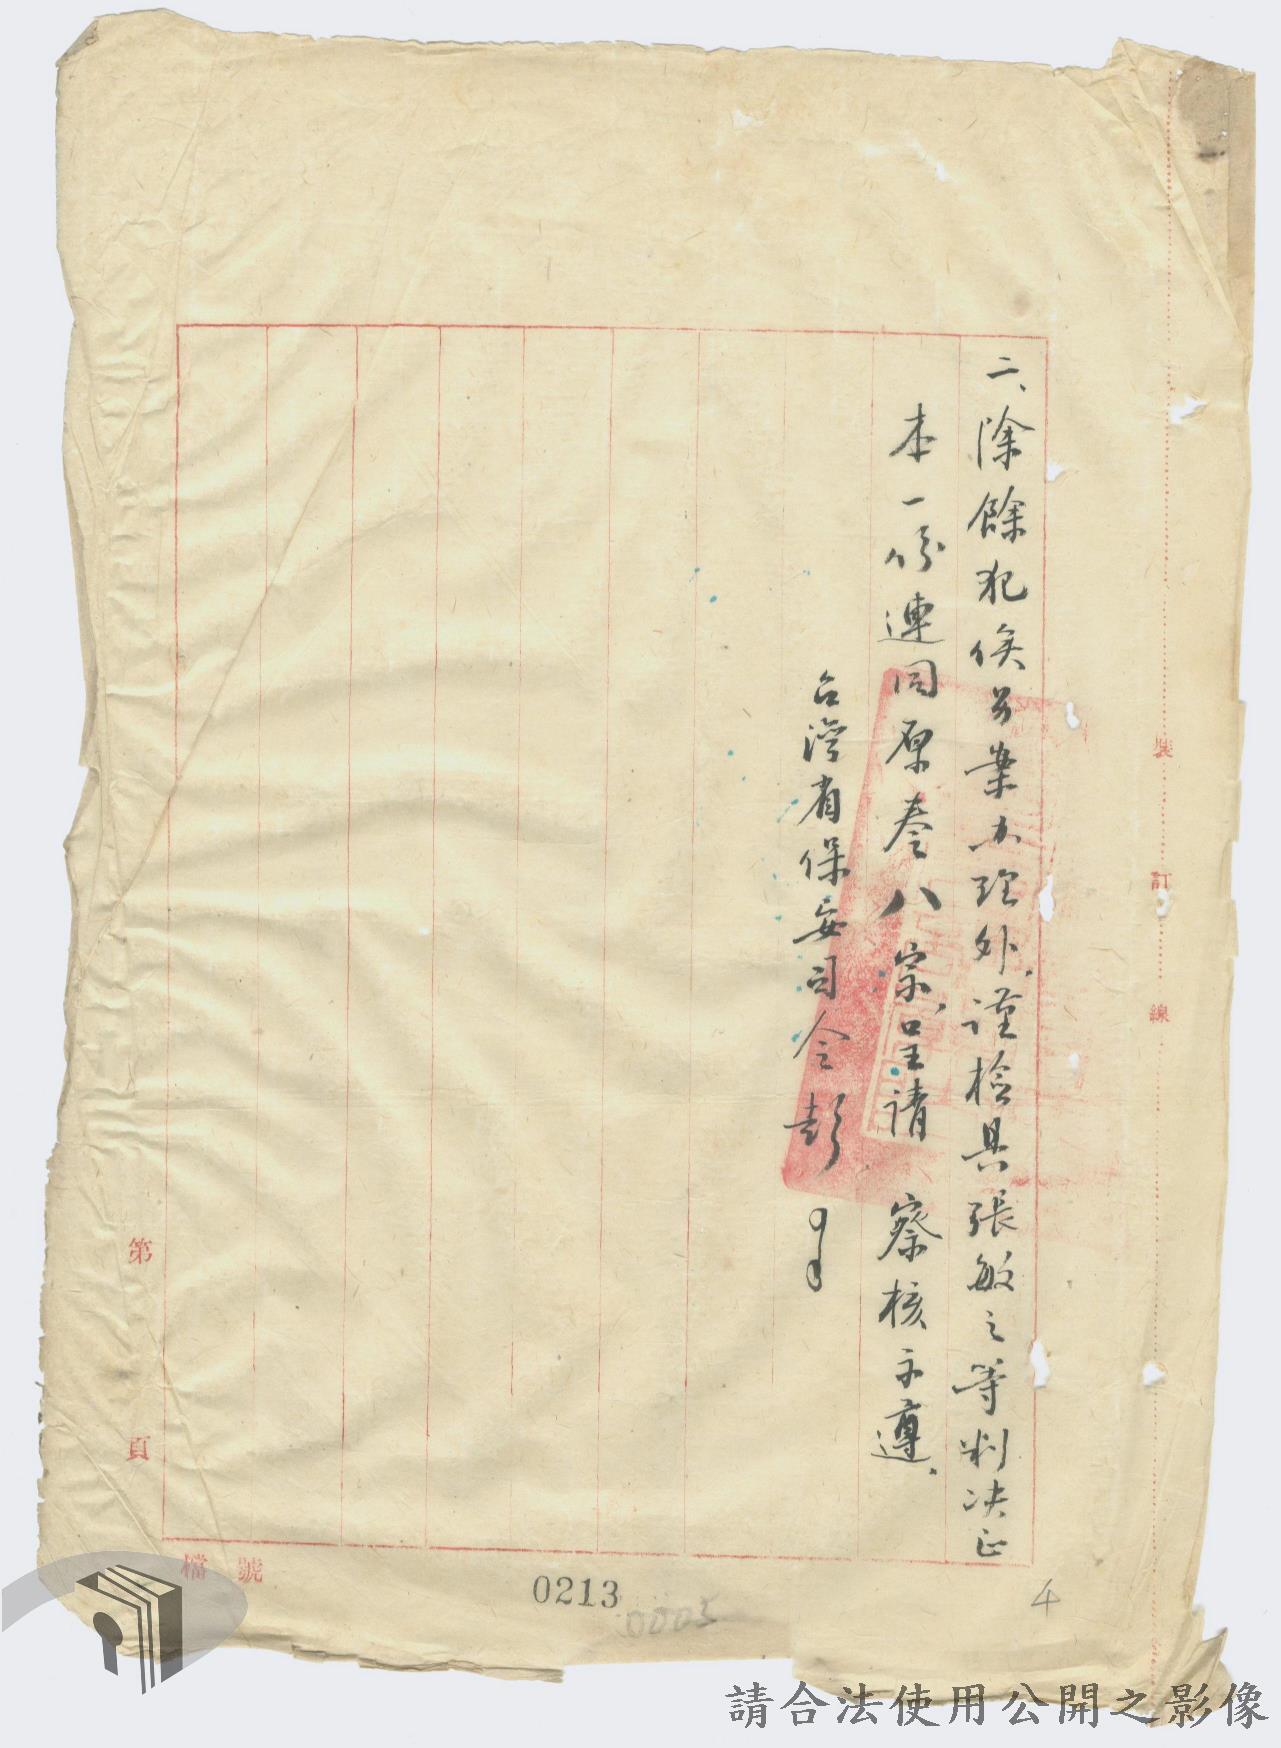 二、除餘犯俟另案办理外，謹檢具張敏之等判决正
本一份連同原卷八宗，呈請　察核示遵。
台灣省保安司令彭
裝
訂
線
第
頁
檔號
0213
0005
4
請合法使用公開之影像